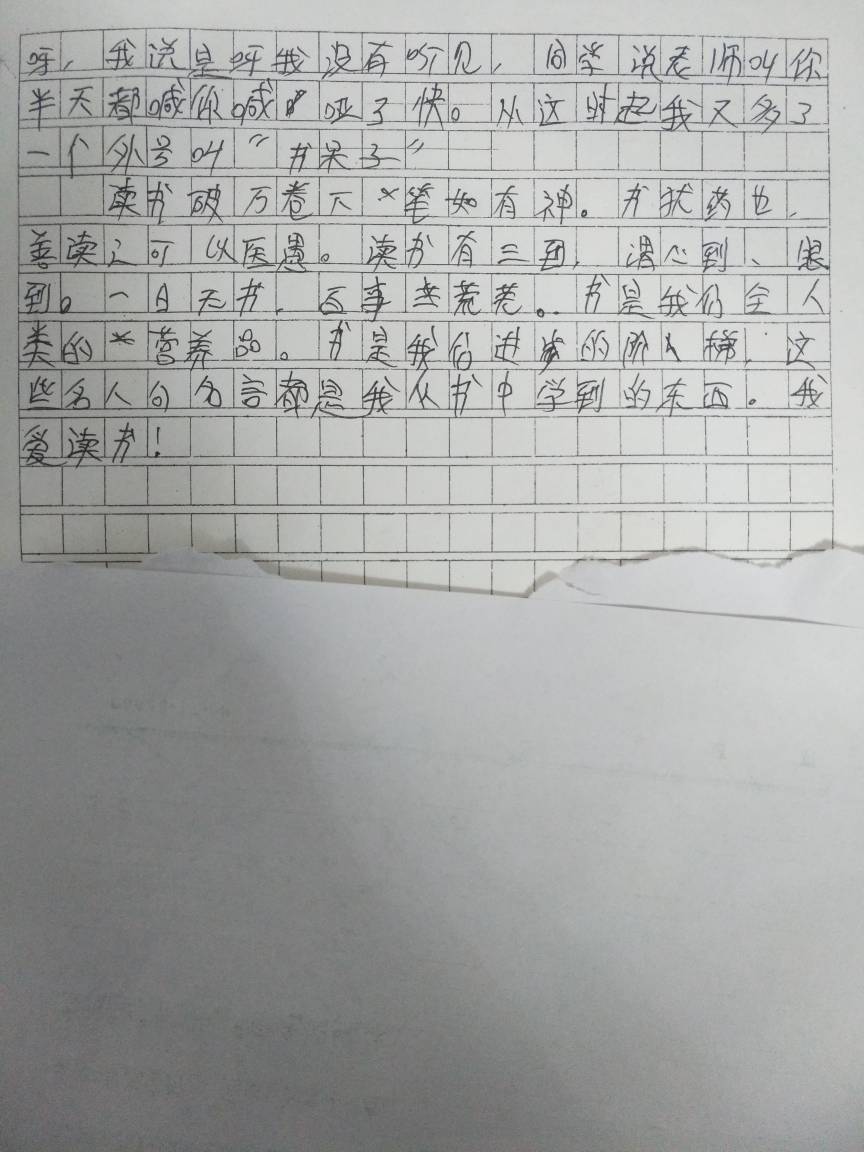 呀，我说是呀我没有听见，同学说老师叫你
半天都喊你喊哑了快。从这时起我又多了
一个外号叫“书呆子”
读书破万卷下笔如有神。书犹药也，
善读之可以医愚。读书有三到，谓心到、眼
到。一日无书，百事荒芜。书是我们全人
类的营养品。书是我们进步的阶梯，这
些名人句名言都是我从书中学到的东西。我
爱读书！